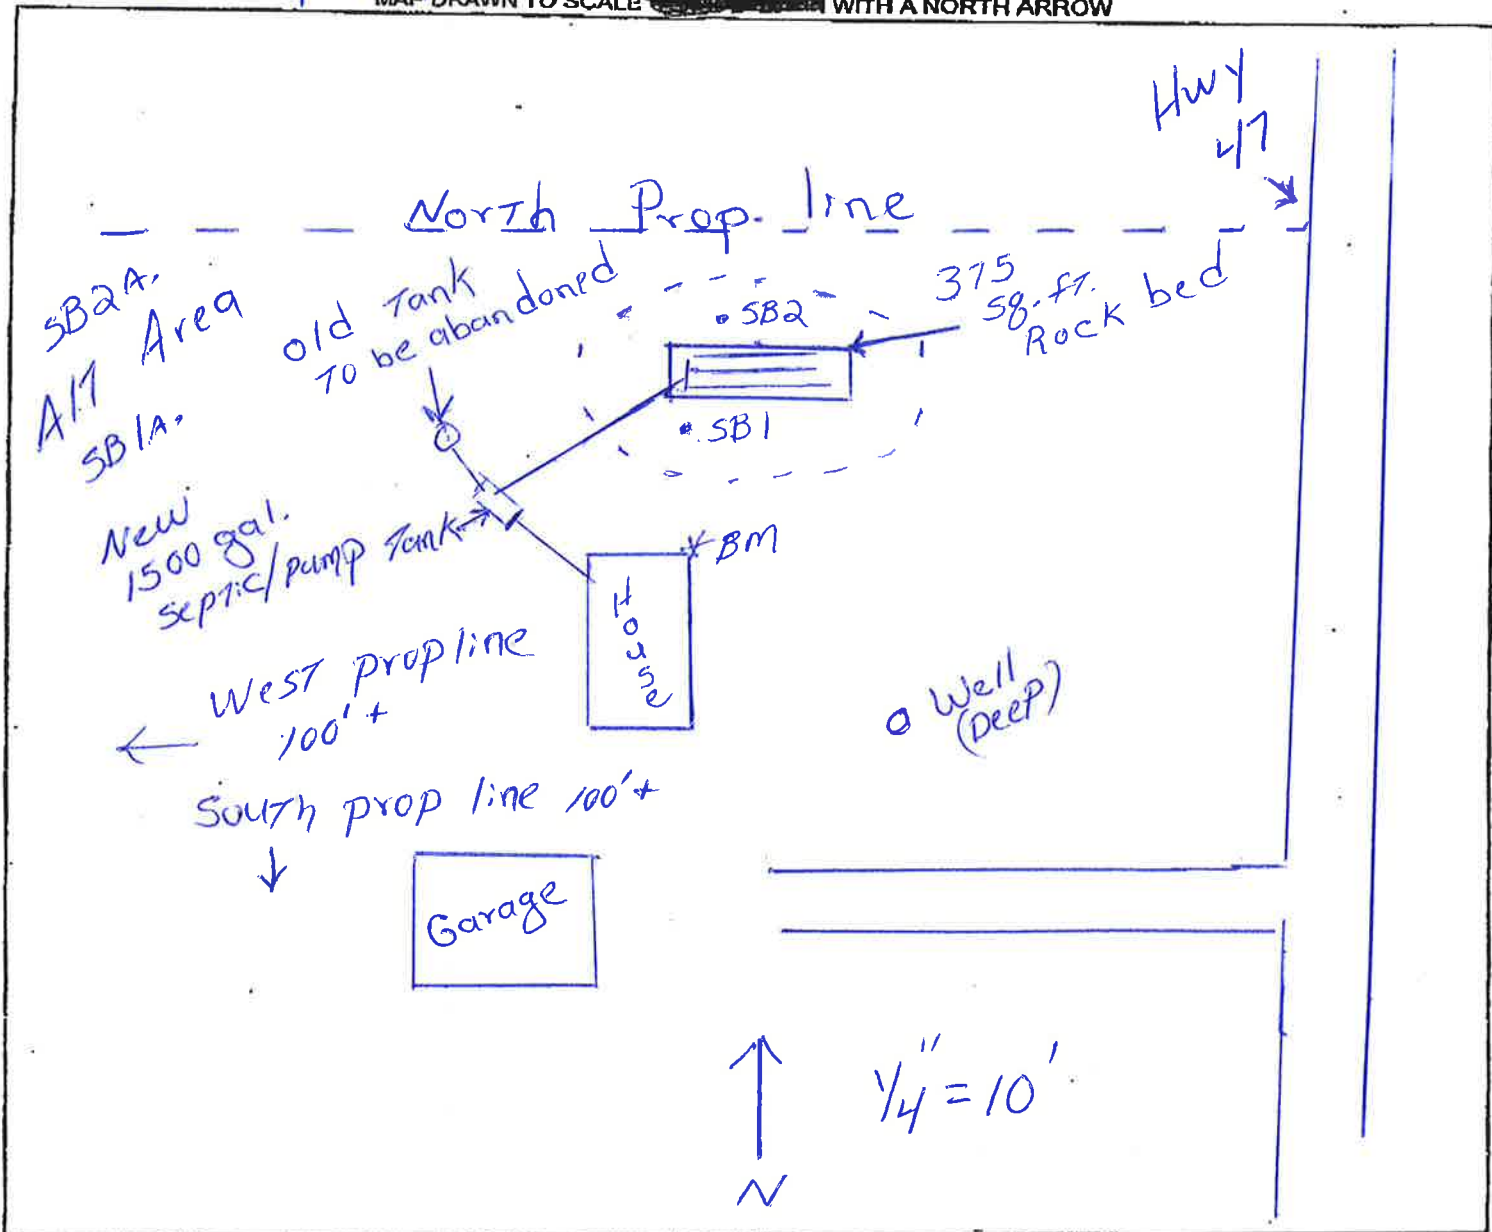 MAP DRAWN TO SCALE WITH A NORTH ARROW
Hwy
47
North Prop. line
SB2A.
Alt Area
SB1A.
old Tank
To be abandoned
SB2
375
sq. ft.
Rock bed
SB1
New
1500 gal.
septic/pump Tank
BM
House
West prop line
100'+
Well
(Deep)
South prop line 100'+
Garage
1/4" = 10'
N